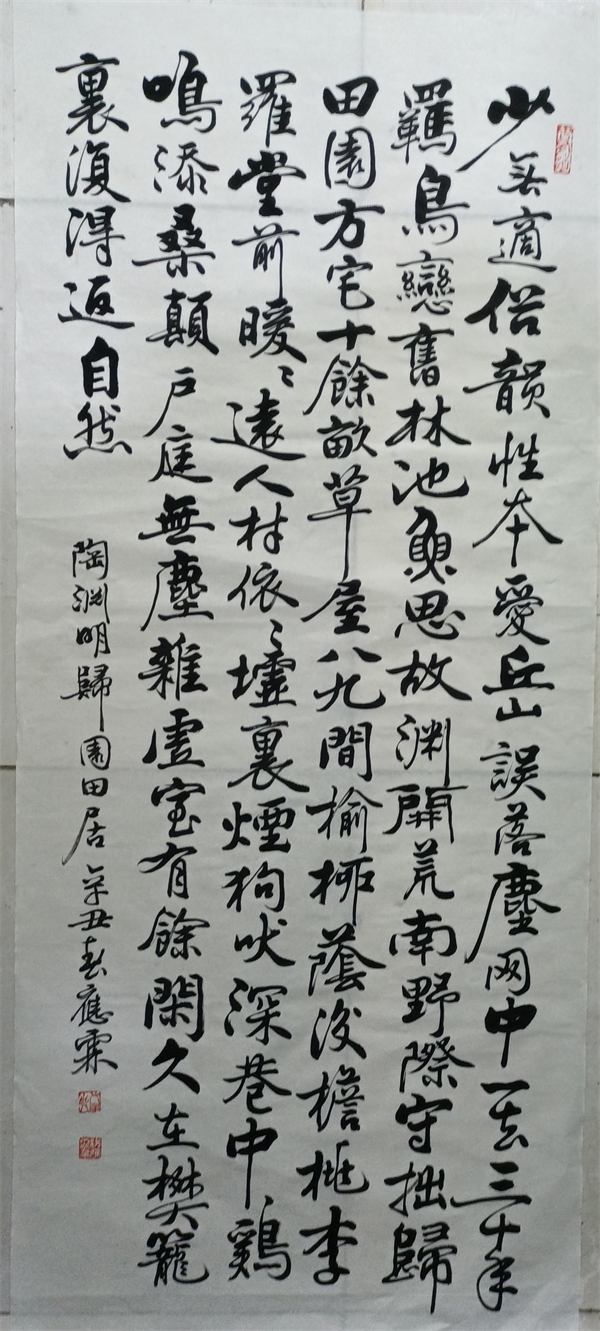 少無適俗韻性本愛丘山誤落塵网中一去三十年
羈鳥戀舊林池魚思故渊開荒南野際守拙歸
田園方宅十餘畝草屋八九間榆柳蔭後檐桃李
羅堂前暧〻遠人村依〻墟裏煙狗吠深巷中鷄
鳴添桑顛户庭無塵雜虚室有餘閑久在樊籠
裏復得返自然
陶渊明歸園田居辛丑春應霖